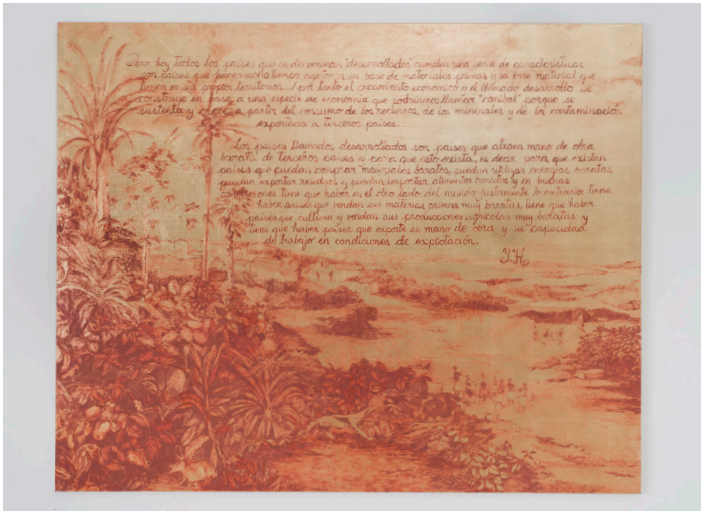 Pero hoy todos los países que se denominan "desarrollados" cumplen una serie de características
son países que hace mucho tiempo agotaron su base de materiales primas y la base material que
tienen en sus propios territorios. Por tanto el crecimiento económico o el llamado desarrollo se
construye en base a una especie de economía que podríamos llamar "caníbal" porque se
sustenta y crece a partir del consumo de los recursos, de los minerales y de la contaminación
exportada a terceros países.
Los países llamados desarrollados son países que atraen mano de obra
barata de terceros países y para que esto exista, es decir para que existan
países que puedan comprar materiales baratos, puedan utilizar energías baratas
puedan exportar residuos y puedan importar alimentos baratos y en buenas
condiciones tiene que haber en el otro lado del mundo justamente lo contrario: tiene
haber países que vendan sus materias primas muy baratas, tiene que haber
países que cultiven y vendan sus producciones agrícolas muy baratas y
tiene que haber países que exporte su mano de obra y su capacidad
de trabajo en condiciones de explotación.
Y.H.